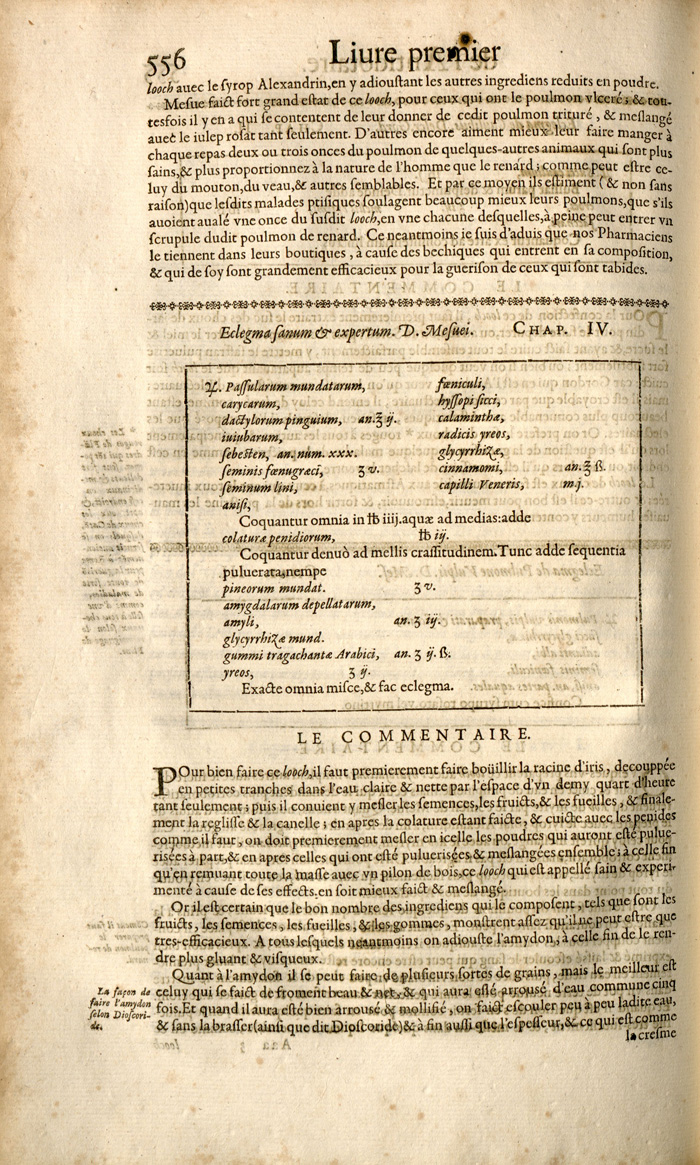 556 Liure premier
looch auec le syrop Alexandrin, en y adioustant les autres ingrediens reduits en poudre.
Mesue faict fort grand estat de ce looch, pour ceux qui ont le poulmon vlceré; & tou-
tesfois il y en a qui se contentent de leur donner de cedit poulmon trituré, & meslangé
auec le iulep rosat tant seulement. D'autres encore aiment mieux leur faire manger à
chaque repas deux ou trois onces du poulmon de quelques-autres animaux qui sont plus
sains, & plus proportionnez à la nature de l'homme que le renard; comme peut estre ce-
luy du mouton, du veau, & autres semblables. Et par ce moyen ils estiment (& non sans
raison) que lesdits malades ptisiques soulagent beaucoup mieux leurs poulmons, que s'ils
auoient aualé vne once du susdit looch, en vne chacune desquelles, à peine peut entrer vn
scrupule dudit poulmon de renard. Ce neantmoins ie suis d'aduis que nos Pharmaciens
le tiennent dans leurs boutiques, à cause des bechiques qui entrent en sa composition,
& qui de soy sont grandement efficacieux pour la guerison de ceux qui sont tabides.
Eclegma sanum & expertum. D. Mesuei. CHAP. IV.
℞. Passularum mundatarum,
carycarum,
dactylorum pinguium, an. ℥ ij.
iuiubarum,
sebesten, an. num. xxx.
seminis fœnugraci, ℥ v.
seminum lini,
anisi,
fœniculi,
hyssopi sicci,
calaminthæ,
radicis yreos,
glycyrrhizæ,
cinnamomi, an. ℥ ß.
capilli Veneris, m. j.
Coquantur omnia in ℔ iiij. aquæ ad medias: adde
colaturæ penidiorum, ℔ ij.
Coquantur denuò ad mellis crassitudinem. Tunc adde sequentia
puluerata, nempe
pineorum mundat. ℥ v.
amygdalarum depellatarum,
amyli, an. ℥ iij.
glycyrrhizæ mund.
gummi tragachantæ Arabici, an. ℥ ij. ß.
yreos, ℥ ij.
Exacte omnia misce, & fac eclegma.
LE COMMENTAIRE.
POur bien faire ce looch, il faut premierement faire boüillir la racine d'iris, decouppée
en petites tranches dans l'eau claire & nette par l'espace d'vn demy quart d'heure
tant seulement; puis il conuient y mesler les semences, les fruicts, & les fueilles, & finale-
ment la reglisse & la canelle; en apres la colature estant faicte, & cuicte auec les penides
comme il faut, on doit premierement mesler en icelle les poudres qui auront esté pulue-
risées à part, & en apres celles qui ont esté puluerisées & meslangées ensemble; à celle fin
qu'en remuant toute la masse auec vn pilon de bois, ce looch qui est appellé sain & experi-
menté à cause de ses effects, en soit mieux faict & meslangé.
Or il est certain que le bon nombre des ingrediens qui le composent, tels que sont les
fruicts, les semences, les fueilles, & les gommes, monstrent assez qu'il ne peut estre que
tres-efficacieux. A tous lesquels neantmoins on adiouste l'amydon, à celle fin de le ren-
dre plus gluant & visqueux.
Quant à l'amydon il se peut faire de plusieurs sortes de grains, mais le meilleur est
celuy qui se faict de froment beau & net, & qui aura esté arrousé d'eau commune cinq
fois. Et quand il aura esté bien arrousé & mollifié, on faict escouler peu à peu ladite eau,
& sans la brasser (ainsi que dit Dioscoride) & à fin aussi que l'espesseur, & ce qui est comme
la cresme
La façon de
faire l'amydon
selon Dioscori-
de.